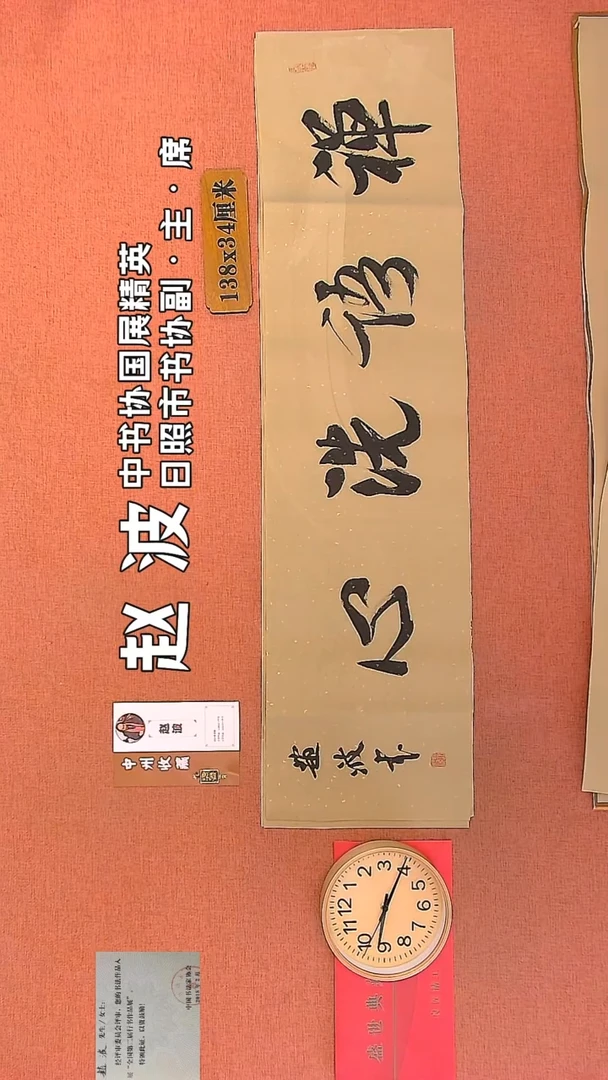 赵波
中书协国展精英
日照市书协副·主·席
138x34厘米
禅修洗心
趙波书
赵波
中州收藏
先生/女士:
经评审委员会评审,您的书法作品入
展“全国第二届行书作品展”,
特颁此证,以资鼓励!
中国书法家协会
盛世典
12
1
2
3
4
5
6
7
8
9
10
11